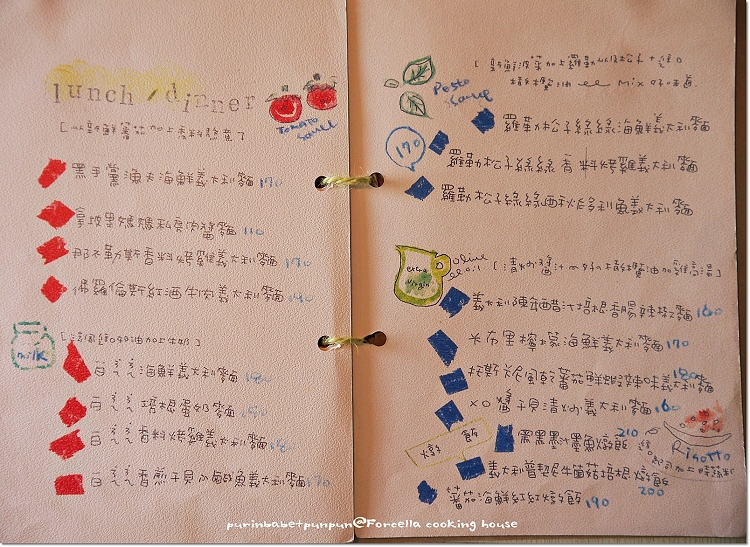 lunch / dinner
Tomato
Sauce
[以新鮮蕃茄加上香料熬煮]
黑手黨漁夫海鮮義大利麵 170
拿坡里媽媽私房肉醬麵 110
那不勒斯香料烤雞義大利麵 170
佛羅倫斯紅酒牛肉義大利麵
milk
奶油加上牛奶]
白ㄋㄟㄋㄟ海鮮義大利麵 180
白ㄋㄟㄋㄟ培根蛋奶麵
白ㄋㄟㄋㄟ香料烤雞義大利麵
白ㄋㄟㄋㄟ香煎干貝 鮭魚義大利麵 170
[新鮮菠菜加上羅勒以及松子
橄欖油 mix 好味道
Pesto
Sauce
170
羅勒松子絲絲海鮮義大利麵
羅勒松子絲絲香料烤雞義大利麵
羅勒松子絲絲酒秋多利魚義大利麵
extra
virgin
olive
oil
[清炒醬汁 橄欖油加雞高湯]
義大利陳年醋汁培根香腸辣椒麵 160
米布里檸檬海鮮義大利麵 170
托斯卡尼風乾蕃茄鮮蝦辣味義大利麵 180
XO醬干貝清炒義大利麵 160
燉飯
黑黑墨汁墨魚燉飯 210
Risotto
義大利普契尼牛菌菇培根燉飯 200
蕃茄海鮮紅紅燉飯 190
purinbabetpunpun@Forcella cooking house